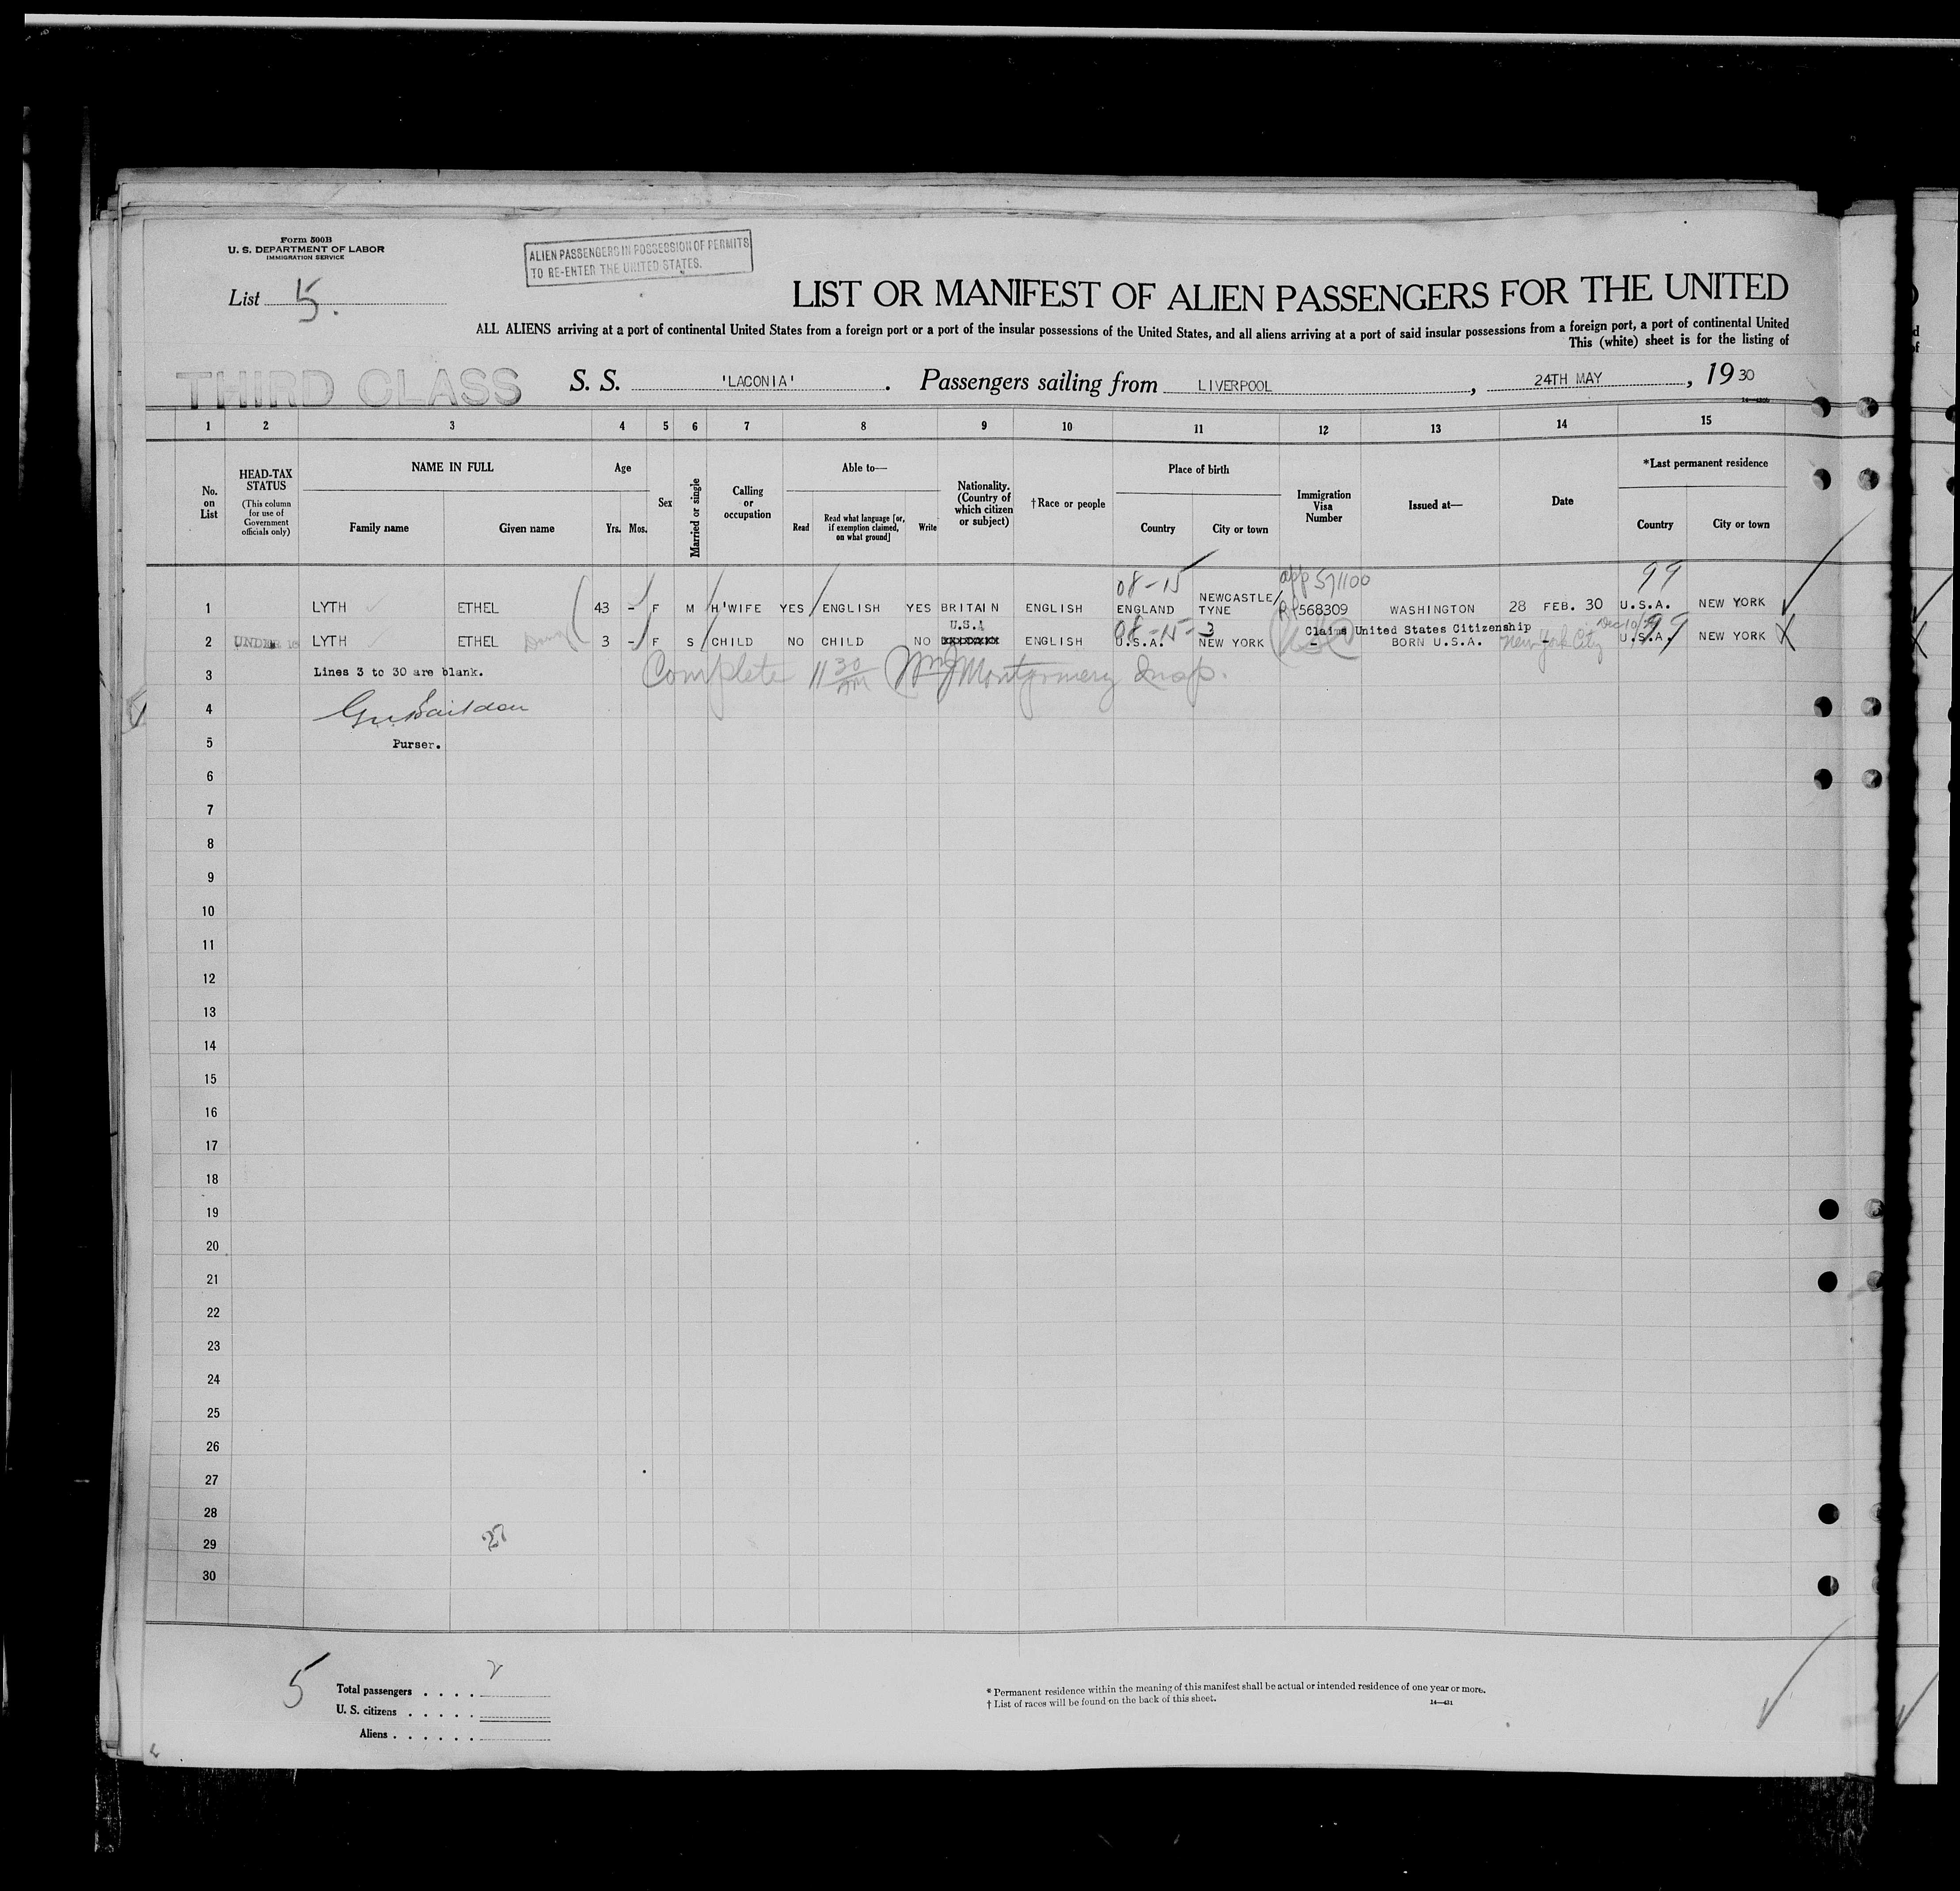 Form 500B
U. S. DEPARTMENT OF LABOR
IMMIGRATION SERVICE
ALIEN PASSENGERS IN POSSESSION OF PERMITS
TO RE-ENTER THE UNITED STATES.
List 5.
LIST OR MANIFEST OF ALIEN PASSENGERS FOR THE UNITED
ALL ALIENS arriving at a port of continental United States from a foreign port or a port of the insular possessions of the United States, and all aliens arriving at a port of said insular possessions from a foreign port, a port of continental United
This (white) sheet is for the listing of
THIRD CLASS
S. S. 'LACONIA'. Passengers sailing from LIVERPOOL, 24TH MAY, 1930
1 2 3 4 5 6 7 8 9 10 11 12 13 14 15
No. on List
HEAD-TAX STATUS
(This column for use of Government officials only)
NAME IN FULL
Family name
Given name
Age
Yrs. Mos.
Sex
Married or single
Calling or occupation
Able to—
Read
Read what language [or, if exemption claimed, on what ground]
Write
Nationality. (Country of which citizen or subject)
†Race or people
Place of birth
Country
City or town
Immigration Visa Number
Issued at—
Date
*Last permanent residence
Country
City or town
08-15 app 571100 99
1 LYTH ETHEL 43 - F M H'WIFE YES ENGLISH YES BRITAIN ENGLISH ENGLAND NEWCASTLE/TYNE 568309 WASHINGTON 28 FEB. 30 U.S.A. NEW YORK
U.S.A 08-15-3 Claims United States Citizenship 99
2 UNDER 16 LYTH ETHEL 3 - F S CHILD NO CHILD NO ENGLISH U.S.A. NEW YORK - BORN U.S.A. - New York City U.S.A. NEW YORK
3 Lines 3 to 30 are blank. Complete 11 30 AM Wm J Montgomery Insp.
4
5 Purser.
6
7
8
9
10
11
12
13
14
15
16
17
18
19
20
21
22
23
24
25
26
27
28
29 27
30
5
Total passengers . . . . 2
U. S. citizens . . . . .
Aliens . . . . . .
* Permanent residence within the meaning of this manifest shall be actual or intended residence of one year or more.
† List of races will be found on the back of this sheet.
14—431